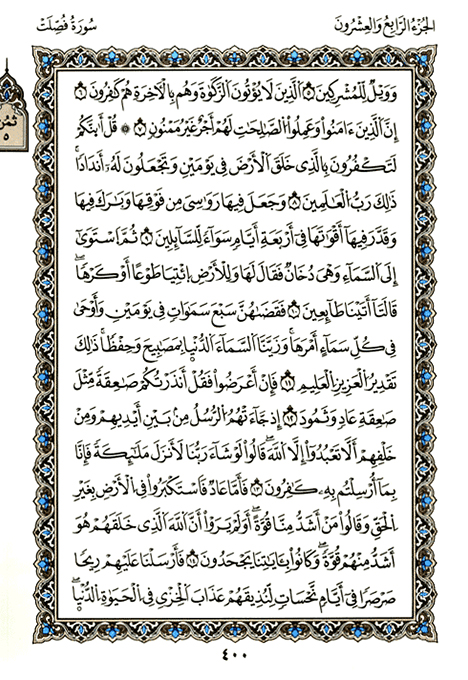 سُورَةُ فُصِّلَتْ
الجُزْءُ الرَّابِعُ وَالعِشْرُونَ
ثُمُن
٥
وَوَيْلٌ لِّلْمُشْرِكِينَ ٥ اَلذِينَ لَا يُؤْتُونَ اَلزَّكَوٰةَ وَهُم بِالَاخِرَةِ هُمْ كَٰفِرُونَ ٦
إِنَّ اَلذِينَ ءَامَنُواْ وَعَمِلُواْ اُلصَّٰلِحَٰتِ لَهُمْ أَجْرٌ غَيْرُ مَمْنُونٍ ٧ ۞ قُلْ أَئِنَّكُمْ
لَتَكْفُرُونَ بِالذِي خَلَقَ اَلْأَرْضَ فِي يَوْمَيْنِ وَتَجْعَلُونَ لَهُۥ أَندَادًا
ذَٰلِكَ رَبُّ اُلْعَٰلَمِينَ ٨ وَجَعَلَ فِيهَا رَوَٰسِيَ مِن فَوْقِهَا وَبَٰرَكَ فِيهَا
وَقَدَّرَ فِيهَا أَقْوَٰتَهَا فِي أَرْبَعَةِ أَيَّامٍ سَوَآءً لِّلسَّآئِلِينَ ٩ ثُمَّ اَسْتَوَىٰ
إِلَى اَلسَّمَآءِ وَهْيَ دُخَانٌ فَقَالَ لَهَا وَلِلْأَرْضِ اِئْتِيَا طَوْعًا أَوْ كَرْهًا
قَالَتَا أَتَيْنَا طَآئِعِينَ ١٠ فَقَضَىٰهُنَّ سَبْعَ سَمَٰوَاتٍ فِي يَوْمَيْنِ وَأَوْحَىٰ
فِي كُلِّ سَمَآءٍ أَمْرَهَا وَزَيَّنَّا اَلسَّمَآءَ اَلدُّنْيَا بِمَصَٰبِيحَ وَحِفْظًا ذَٰلِكَ
تَقْدِيرُ اُلْعَزِيزِ اِلْعَلِيمِ ١١ فَإِنْ أَعْرَضُواْ فَقُلْ أَنذَرْتُكُمْ صَٰعِقَةً مِّثْلَ
صَٰعِقَةِ عَادٍ وَثَمُودَ ١٢ إِذْ جَآءَتْهُمُ اُلرُّسُلُ مِنۢ بَيْنِ أَيْدِيهِمْ وَمِنْ
خَلْفِهِمْ أَلَّا تَعْبُدُواْ إِلَّا اَللَّهَ قَالُواْ لَوْ شَآءَ رَبُّنَا لَأَنزَلَ مَلَٰٓئِكَةً فَإِنَّا
بِمَا أُرْسِلْتُم بِهِۦ كَٰفِرُونَ ١٣ فَأَمَّا عَادٌ فَاسْتَكْبَرُواْ فِي اِلْأَرْضِ بِغَيْرِ
اِلْحَقِّ وَقَالُواْ مَنْ أَشَدُّ مِنَّا قُوَّةً أَوَلَمْ يَرَوْاْ أَنَّ اَللَّهَ اَلذِي خَلَقَهُمْ هُوَ
أَشَدُّ مِنْهُمْ قُوَّةً وَكَانُواْ بِـَٔايَٰتِنَا يَجْحَدُونَ ١٤ فَأَرْسَلْنَا عَلَيْهِمْ رِيحًا
صَرْصَرًا فِي أَيَّامٍ نَّحْسَاتٍ لِّنُذِيقَهُمْ عَذَابَ اَلْخِزْيِ فِي اِلْحَيَوٰةِ اِلدُّنْيَا
٤٠٠